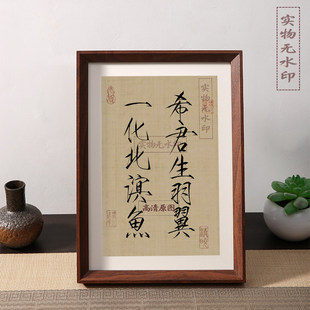 希君生羽翼
一化北溟魚
实物无水印
实物无水印
实物无水印
高清原图